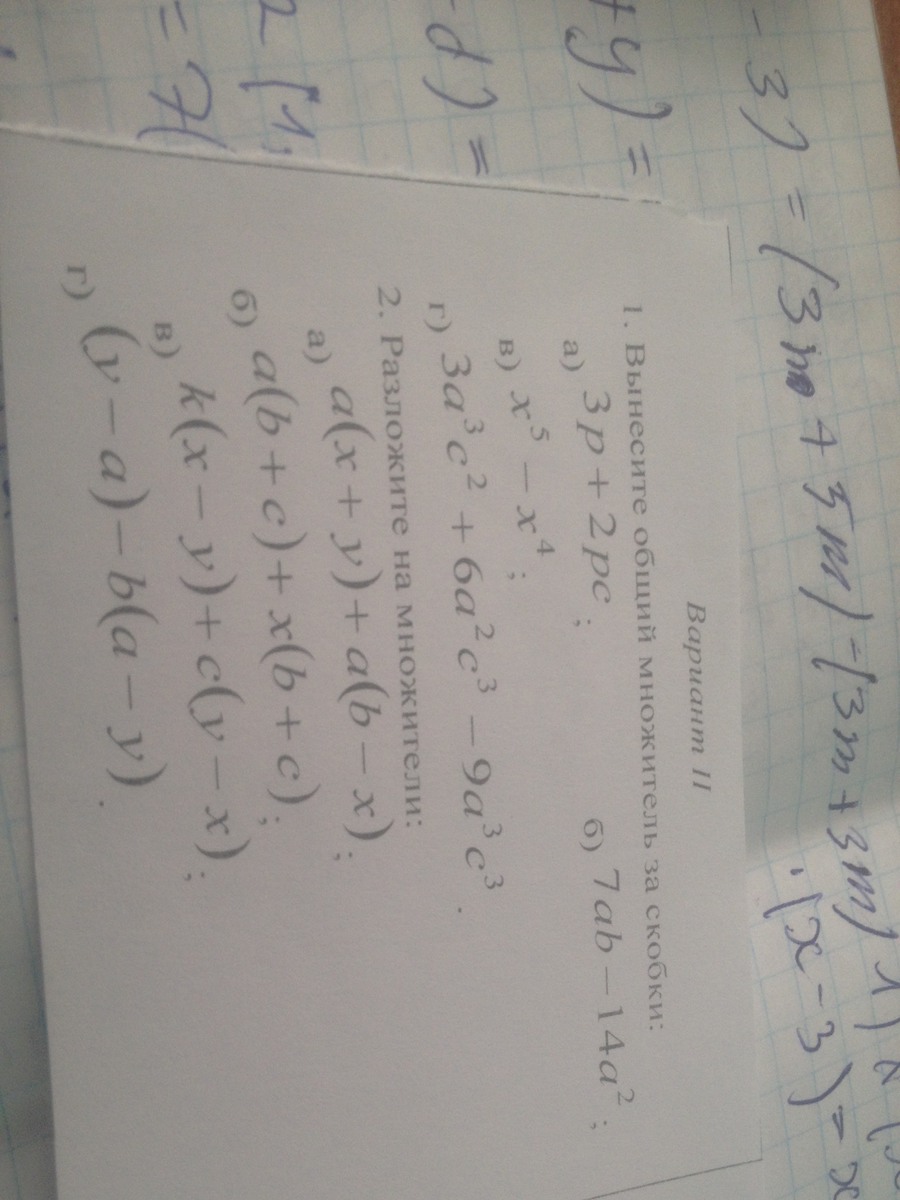 - 3) = (3m + 3m) = (3m + 3m)
· (x - 3) =
+ y) =
- d) =
Вариант II
1. Вынесите общий множитель за скобки:
а) 3p + 2pc; б) 7ab − 14a²;
в) x⁵ − x⁴;
г) 3a³c² + 6a²c³ − 9a³c³.
2. Разложите на множители:
а) a(x + y) + a(b − x);
б) a(b + c) + x(b + c);
в) k(x − y) + c(y − x);
г) (y − a) − b(a − y).